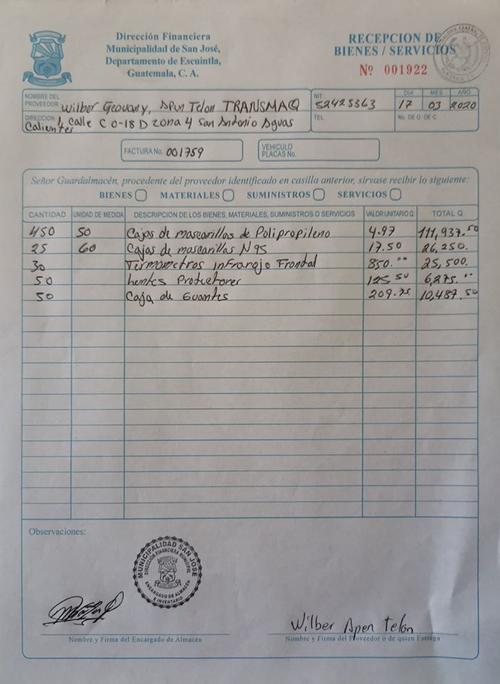 Dirección Financiera
Municipalidad de San José,
Departamento de Escuintla,
Guatemala, C. A.
RECEPCION DE
BIENES / SERVICIOS
Nº 001922
NOMBRE DEL PROVEEDOR Wilber Geovany, Apen Telon TRANSMAQ
DIRECCION 1, calle C 0-18 D zona 4 San Antonio Aguas
Calientes
NIT: 52425363
TEL.
DIA MES AÑO
17 03 2020
No. DE O. DE C.
FACTURA No. 001759
VEHICULO PLACAS No.
Señor Guardalmacén, procedente del proveedor identificado en casilla anterior, sírvase recibir lo siguiente:
BIENES MATERIALES SUMINISTROS SERVICIOS
CANTIDAD UNIDAD DE MEDIDA DESCRIPCION DE LOS BIENES, MATERIALES, SUMINISTROS O SERVICIOS VALOR UNITARIO Q TOTAL Q.
450 50 Cajas de mascarillas de Polipropileno 4.97 111,937.50
25 60 Cajas de mascarillas N95 17.50 26,250.
30 Termometros infrarojo Frontal 850.00 25,500.
50 Lentes Protectores 125.50 6,275.00
50 Caja de Guantes 209.75 10,487.50
Observaciones:
MUNICIPALIDAD SAN JOSE
DIRECCION FINANCIERA MUNICIPAL
ENCARGADO DE ALMACEN
E INVENTARIO
Wilber Apen Telón
Nombre y Firma del Encargado de Almacén
Nombre y Firma del Proveedor o de quien Entrega